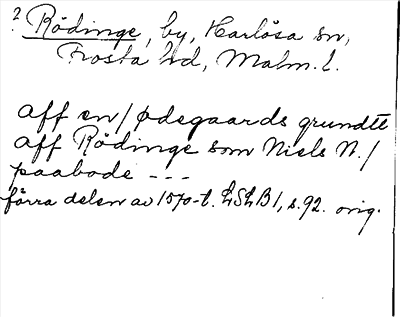 ? Rödinge, by, Harlösa sn,
Frosta hd, Malm. l.
aff en / ødegaards grundtt
aff Rödinge som Niels N. /
paabode ---
förra delen av 1570-t. LSLB1, s. 92. orig.